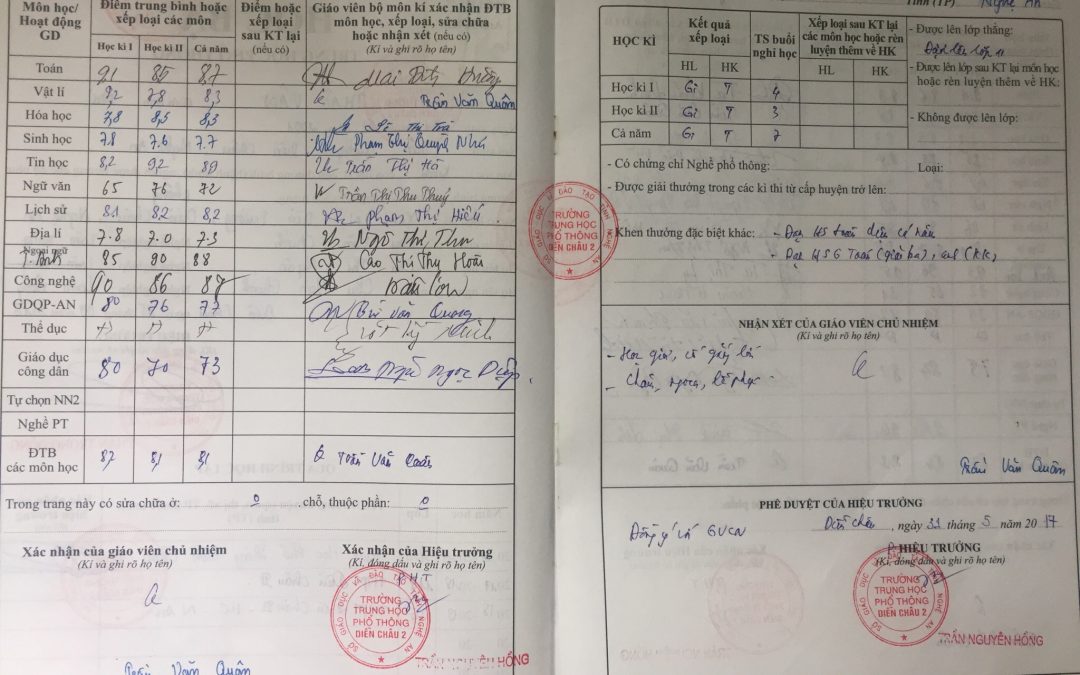 Môn học/ Hoạt động GD
Điểm trung bình hoặc xếp loại các môn
Học kì I
Học kì II
Cả năm
Điểm hoặc xếp loại sau KT lại (nếu có)
Giáo viên bộ môn kí xác nhận ĐTB môn học, xếp loại, sửa chữa hoặc nhận xét (nếu có)
(Kí và ghi rõ họ tên)
Toán 8,7
Vật lí 9,2 7,8 8,3 Trần Văn Quân
Hóa học 7,8 8,5 8,3
Sinh học 7.8 7.6 7.7 Phạm Thị Quyệt Nhá
Tin học 8,2 9,2 Trần Thị Hà
Ngữ văn 65 76 72 Trần Thị Thu Thuỷ
Lịch sử 8.1 8.2 8,2 Phạm Thị Hiếu
Địa lí 7.8 7.0 7.3 Ngô Thị Thu
Ngoại ngữ 85 90 88 Cao Thị Thy Hoài
Công nghệ 90 86
GDQP-AN 80 76 77 Văn Quang
Thể dục
Giáo dục công dân 80 70 73 Ngọc Diệp
Tự chọn NN2
Nghề PT
ĐTB các môn học 8,1 Trần Văn Quân
Trong trang này có sửa chữa ở: 0 chỗ, thuộc phần: 0
Xác nhận của giáo viên chủ nhiệm
(Kí và ghi rõ họ tên)
Trần Văn Quân
Xác nhận của Hiệu trưởng
(Kí, đóng dấu và ghi rõ họ tên)
SỞ GIÁO DỤC VÀ ĐÀO TẠO TỈNH NGHỆ AN
TRƯỜNG
TRUNG HỌC
PHỔ THÔNG
DIỄN CHÂU 2
TRẦN NGUYÊN HỒNG
Tỉnh (TP) Nghệ An
HỌC KÌ
Kết quả xếp loại
HL
HK
TS buổi nghỉ học
Xếp loại sau KT lại các môn học hoặc rèn luyện thêm về HK
HL
HK
Học kì I Gi T 4
Học kì II Gi T 3
Cả năm Gi T 7
- Được lên lớp thẳng:
Được lên lớp 11
- Được lên lớp sau KT lại môn học hoặc rèn luyện thêm về HK:
- Không được lên lớp:
- Có chứng chỉ Nghề phổ thông: Loại:
- Được giải thưởng trong các kì thi từ cấp huyện trở lên:
- Khen thưởng đặc biệt khác: - Đạt HS toàn diện cả năm
- Đạt HSG Toán (giải ba), (KK)
SỞ GIÁO DỤC VÀ ĐÀO TẠO TỈNH NGHỆ AN
TRƯỜNG
TRUNG HỌC
PHỔ THÔNG
DIỄN CHÂU 2
NHẬN XÉT CỦA GIÁO VIÊN CHỦ NHIỆM
(Kí và ghi rõ họ tên)
- Học giỏi, cố gắng tốt
- Chăm, ngoan, lễ phép
Trần Văn Quân
PHÊ DUYỆT CỦA HIỆU TRƯỞNG
Đồng ý với GVCN
Diễn Châu, ngày 31 tháng 5 năm 2017
HIỆU TRƯỞNG
(Kí, đóng dấu và ghi rõ họ tên)
SỞ GIÁO DỤC VÀ ĐÀO TẠO TỈNH NGHỆ AN
TRƯỜNG
TRUNG HỌC
PHỔ THÔNG
DIỄN CHÂU 2
TRẦN NGUYÊN HỒNG